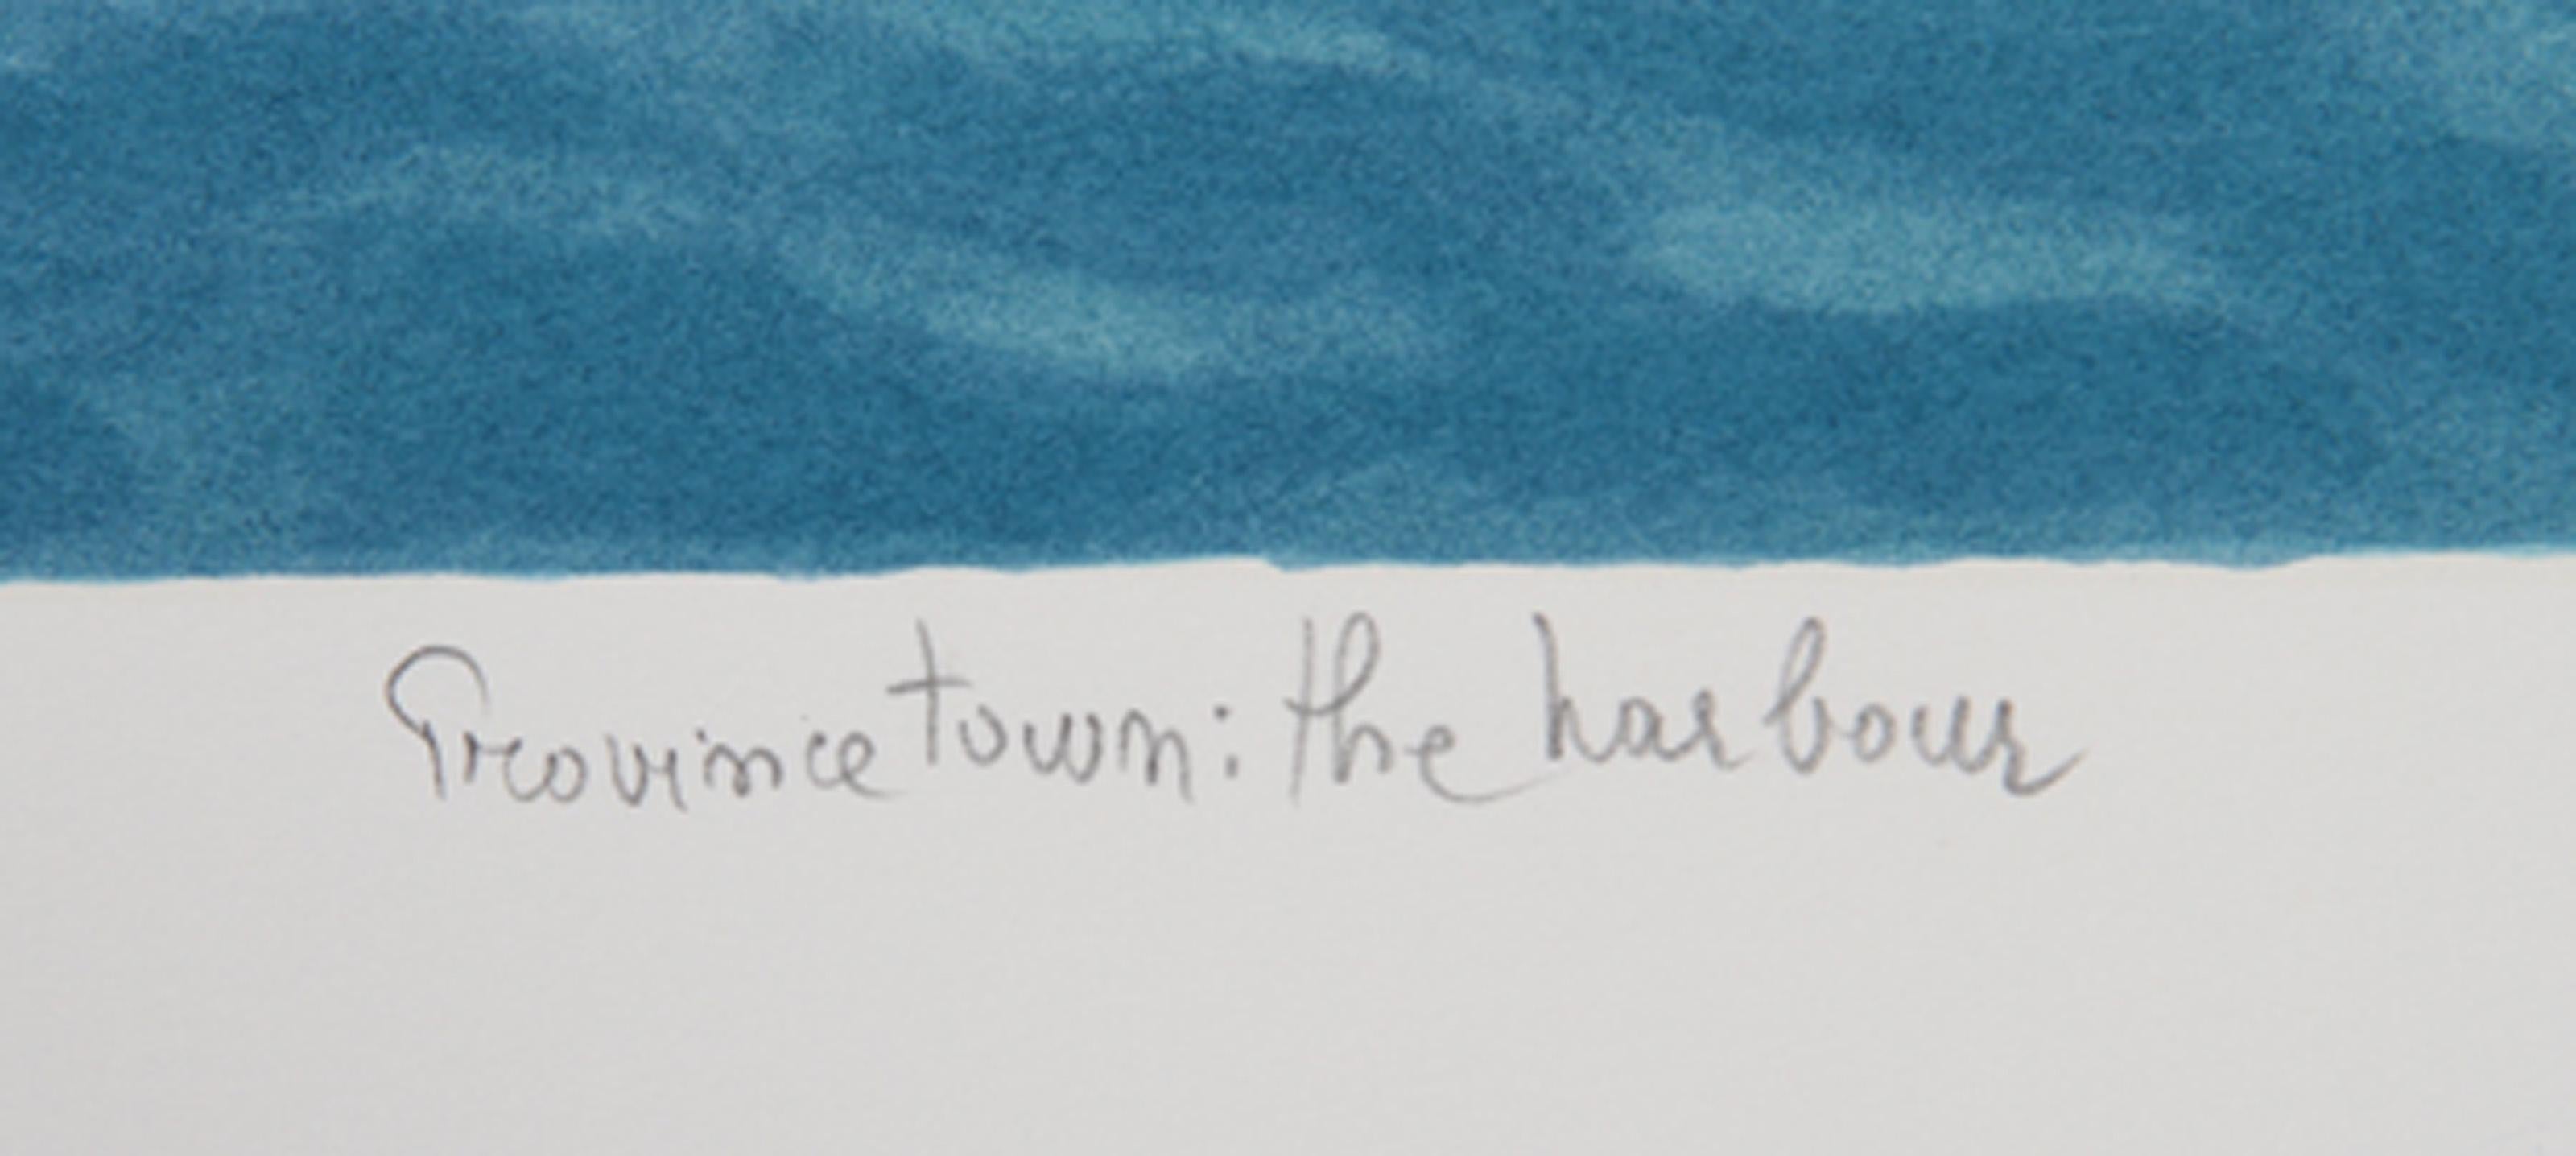 Provincetown: the harbour